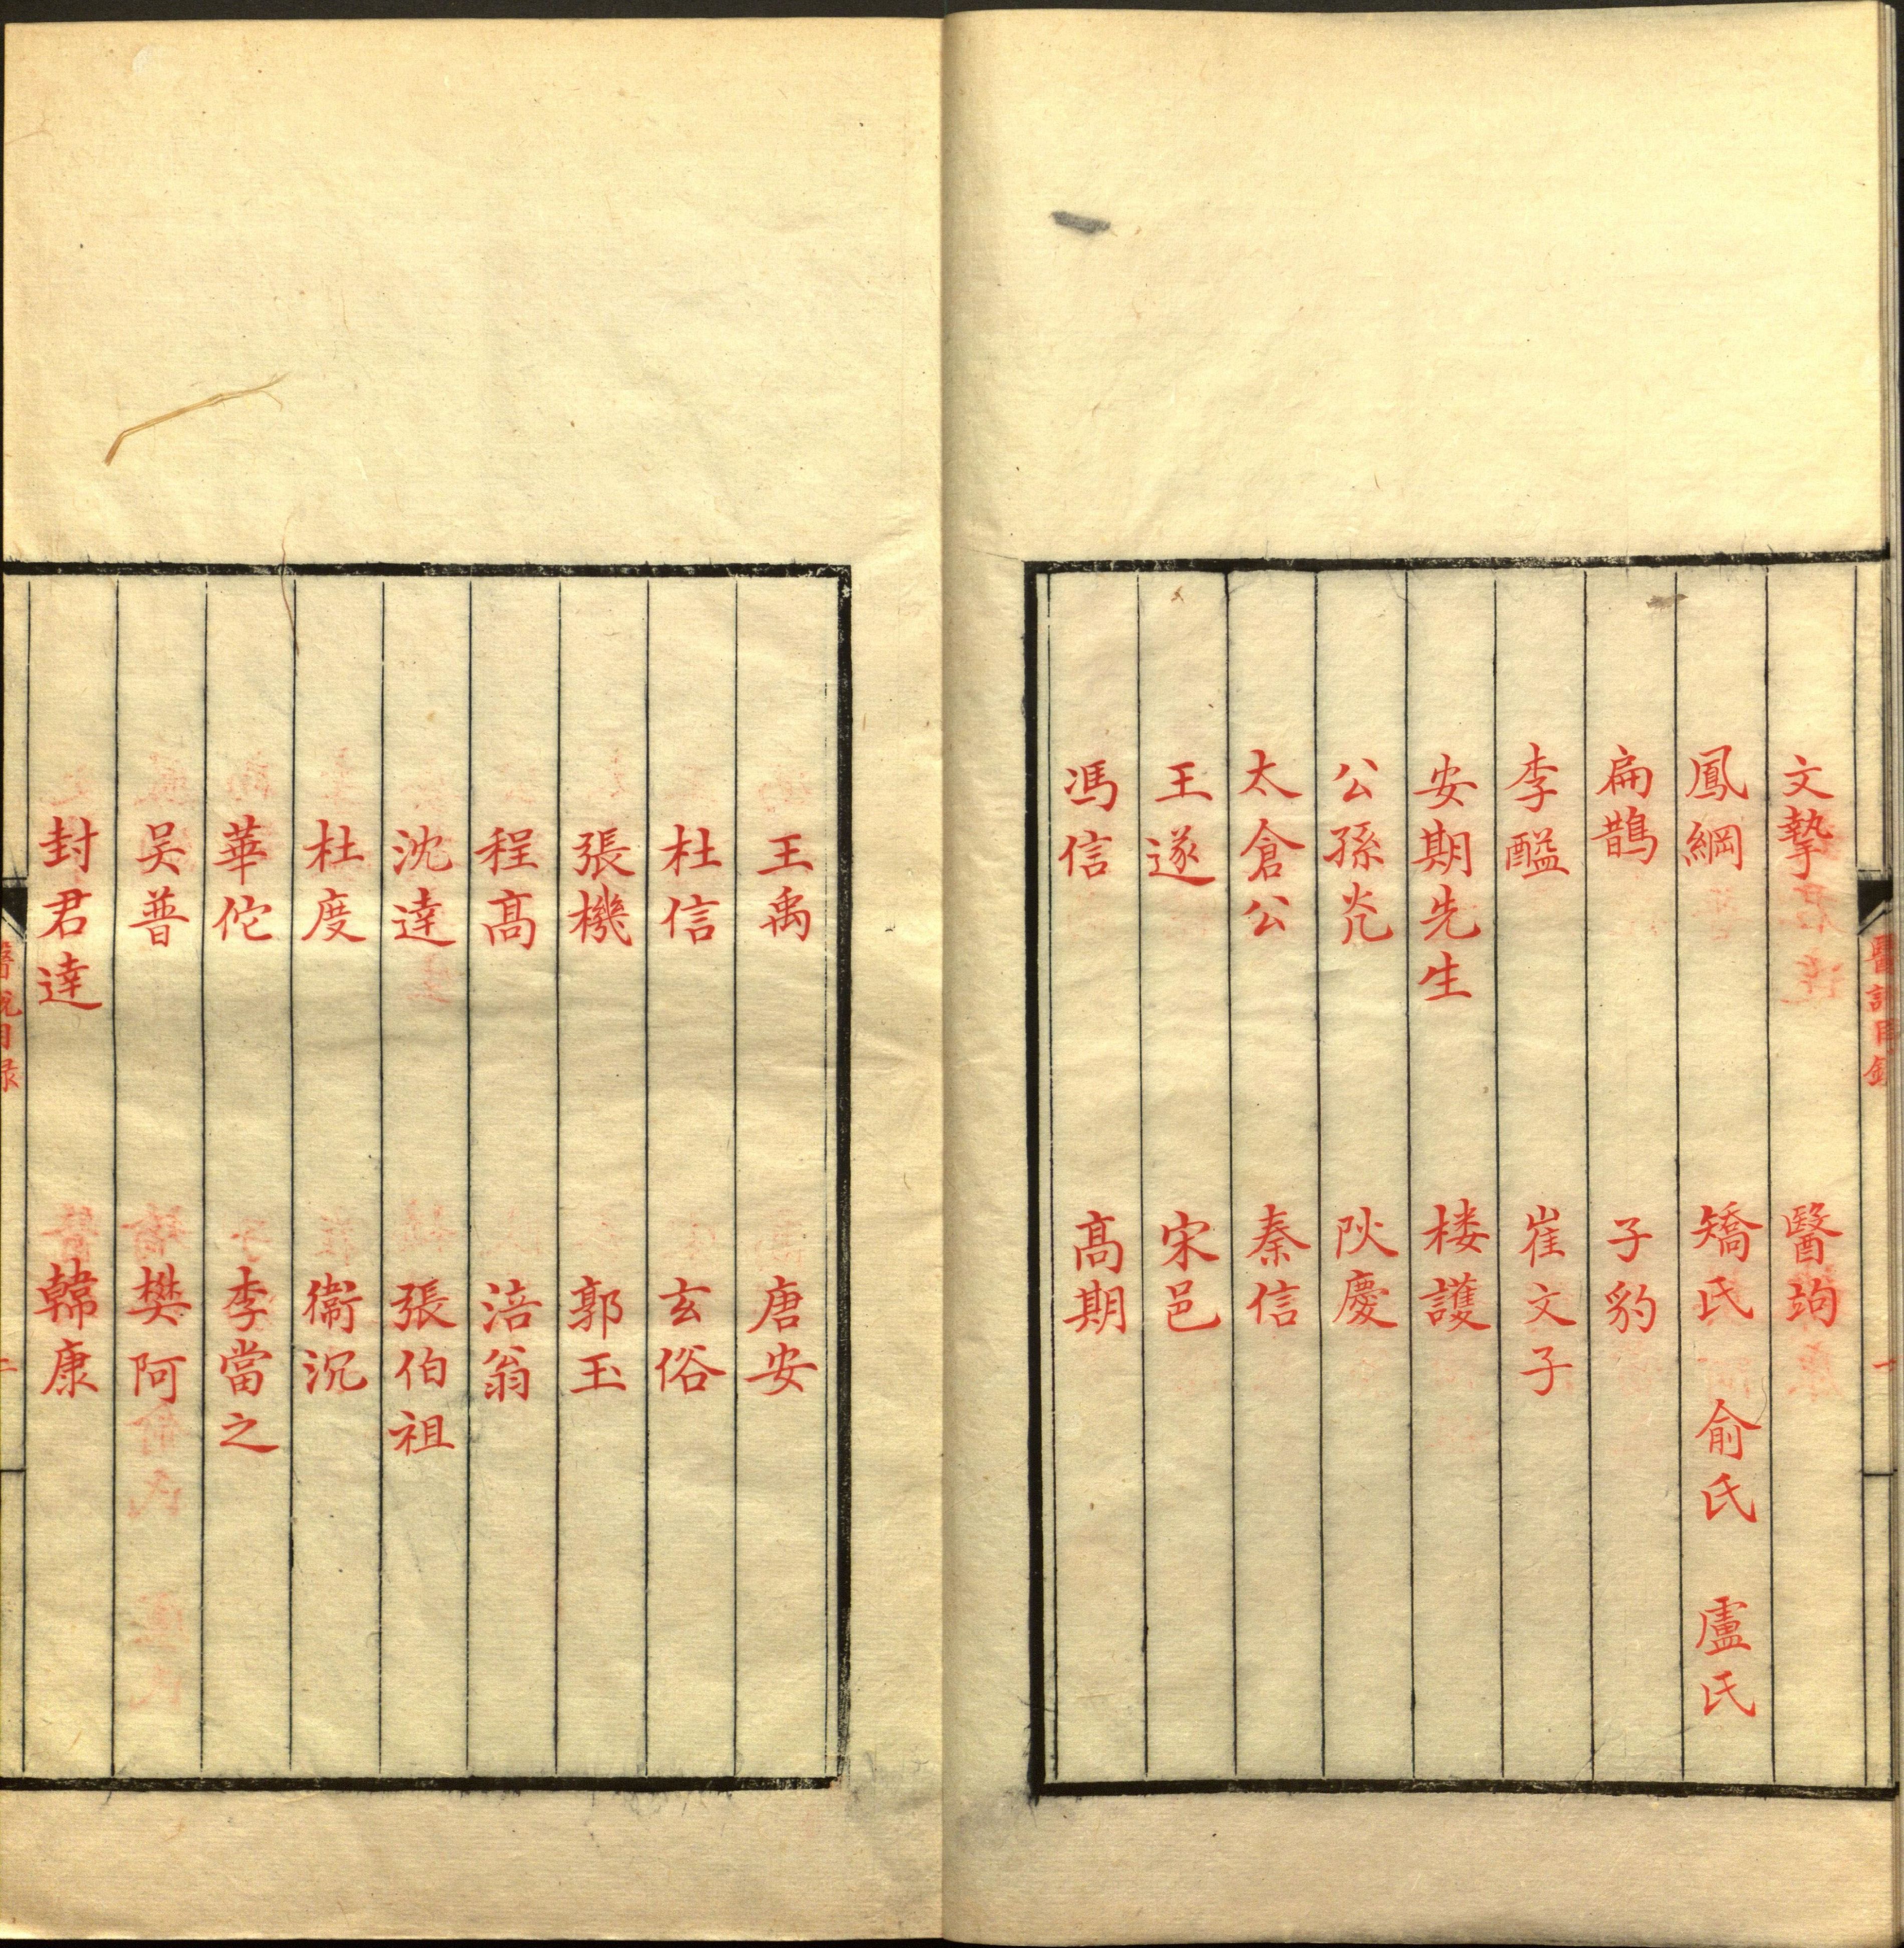 文摯 醫竘
鳳綱 矯氏 俞氏 盧氏
扁鵲 子豹
李醯 崔文子
安期先生 楼護
公孫光 陽慶
太倉公 秦信
王遂 宋邑
馮信 高期
王禹 唐安
杜信 玄俗
張機 郭玉
程高 涪翁
沈達 張伯祖
杜度 衞沉
華佗 李當之
吴普 樊阿
封君達 韓康
醫說目錄